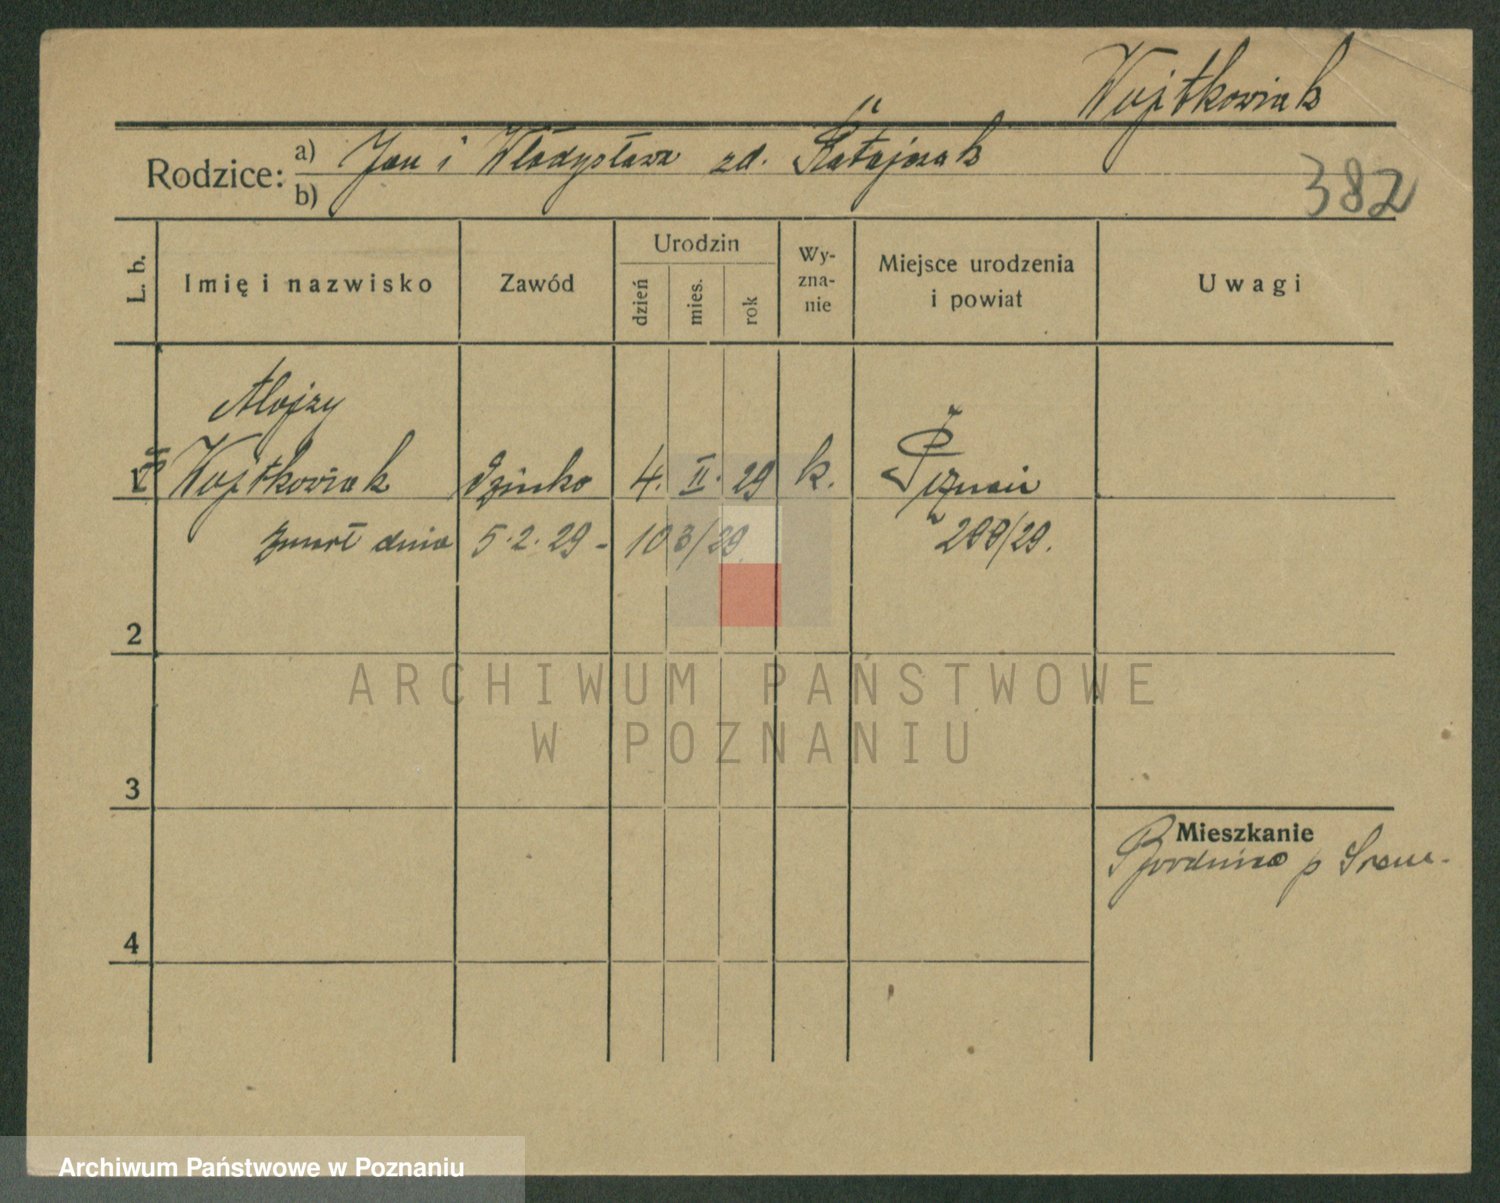 Wojtkowiak
Rodzice: a) Jan i Władysława zd. Ratajczak
b)
382
L. b. Imię i nazwisko Zawód Urodzin dzień mies. rok Wyznanie Miejsce urodzenia i powiat Uwagi
Alojzy
1 Wojtkowiak 4. II. 29 k. Poznań
zmarł dnia 5.2.29 - 103/29 299/29.
2
ARCHIWUM PAŃSTWOWE
W POZNANIU
3
Mieszkanie
p Śrem.
4
Archiwum Państwowe w Poznaniu